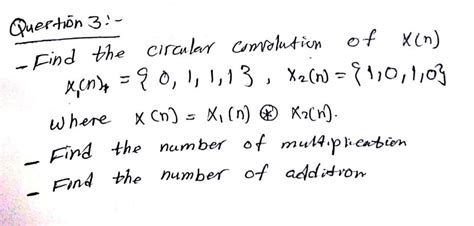 Question 3:-
- Find the circular convolution of x(n)
x₁(n) = {0, 1, 1, 1}, x₂(n) = {1, 0, 1, 0}
where x(n) = x₁(n) ⊛ x₂(n).
- Find the number of multiplication
- Find the number of addition